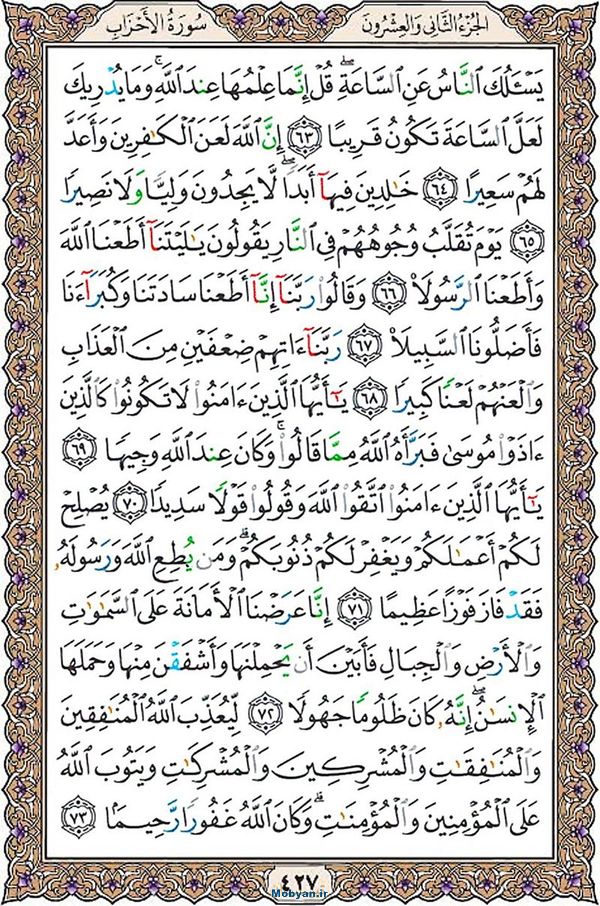 الجُزْءُ الثَّانِي وَالعِشْرُونَ سُورَةُ الأَحْزَابِ
يَسْـَٔلُكَ ٱلنَّاسُ عَنِ ٱلسَّاعَةِۖ قُلْ إِنَّمَا عِلْمُهَا عِندَ ٱللَّهِۚ وَمَا يُدْرِيكَ
لَعَلَّ ٱلسَّاعَةَ تَكُونُ قَرِيبًا ٦٣ إِنَّ ٱللَّهَ لَعَنَ ٱلْكَٰفِرِينَ وَأَعَدَّ
لَهُمْ سَعِيرًا ٦٤ خَٰلِدِينَ فِيهَآ أَبَدًاۖ لَّا يَجِدُونَ وَلِيًّا وَلَا نَصِيرًا
٦٥ يَوْمَ تُقَلَّبُ وُجُوهُهُمْ فِى ٱلنَّارِ يَقُولُونَ يَٰلَيْتَنَآ أَطَعْنَا ٱللَّهَ
وَأَطَعْنَا ٱلرَّسُولَا۠ ٦٦ وَقَالُوا۟ رَبَّنَآ إِنَّآ أَطَعْنَا سَادَتَنَا وَكُبَرَآءَنَا
فَأَضَلُّونَا ٱلسَّبِيلَا۠ ٦٧ رَبَّنَآ ءَاتِهِمْ ضِعْفَيْنِ مِنَ ٱلْعَذَابِ
وَٱلْعَنْهُمْ لَعْنًا كَبِيرًا ٦٨ يَٰٓأَيُّهَا ٱلَّذِينَ ءَامَنُوا۟ لَا تَكُونُوا۟ كَٱلَّذِينَ
ءَاذَوْا۟ مُوسَىٰ فَبَرَّأَهُ ٱللَّهُ مِمَّا قَالُوا۟ۚ وَكَانَ عِندَ ٱللَّهِ وَجِيهًا ٦٩
يَٰٓأَيُّهَا ٱلَّذِينَ ءَامَنُوا۟ ٱتَّقُوا۟ ٱللَّهَ وَقُولُوا۟ قَوْلًا سَدِيدًا ٧٠ يُصْلِحْ
لَكُمْ أَعْمَٰلَكُمْ وَيَغْفِرْ لَكُمْ ذُنُوبَكُمْۗ وَمَن يُطِعِ ٱللَّهَ وَرَسُولَهُۥ
فَقَدْ فَازَ فَوْزًا عَظِيمًا ٧١ إِنَّا عَرَضْنَا ٱلْأَمَانَةَ عَلَى ٱلسَّمَٰوَٰتِ
وَٱلْأَرْضِ وَٱلْجِبَالِ فَأَبَيْنَ أَن يَحْمِلْنَهَا وَأَشْفَقْنَ مِنْهَا وَحَمَلَهَا
ٱلْإِنسَٰنُۖ إِنَّهُۥ كَانَ ظَلُومًا جَهُولًا ٧٢ لِّيُعَذِّبَ ٱللَّهُ ٱلْمُنَٰفِقِينَ
وَٱلْمُنَٰفِقَٰتِ وَٱلْمُشْرِكِينَ وَٱلْمُشْرِكَٰتِ وَيَتُوبَ ٱللَّهُ
عَلَى ٱلْمُؤْمِنِينَ وَٱلْمُؤْمِنَٰتِۗ وَكَانَ ٱللَّهُ غَفُورًا رَّحِيمًۢا ٧٣
٤٢٧
Mobyan.ir